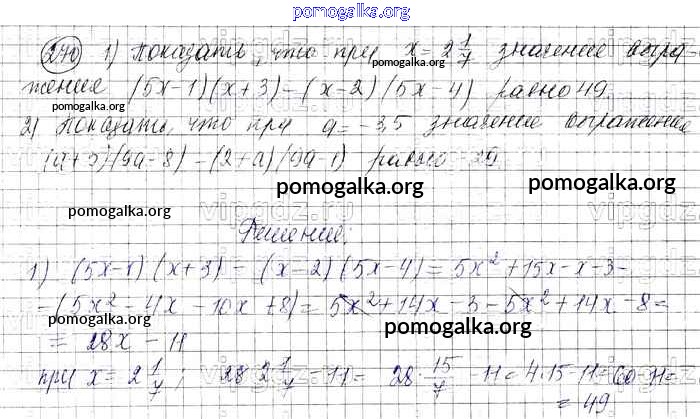 pomogalka.org
270) 1) Показать, что при x = 2 1/7 значение выра
pomogalka.org
жение (5x-1)(x+3)-(x-2)(5x-4) равно 49.
pomogalka.org
2) Показать, что при a = -3,5 значение выражение
(a+3)(9a-8)-(2+a)(9a-1) равно -29
pomogalka.org pomogalka.org
pomogalka.org vipgdz.ru
Решение:
1) (5x-1)(x+3) - (x-2)(5x-4) = 5x² + 15x - x - 3 -
-(5x² - 4x - 10x + 8) = 5x² + 14x - 3 - 5x² + 14x - 8 =
pomogalka.org pomogalka.org
= 28x - 11
при x = 2 1/7; 28·2 1/7 - 11 = 28 · 15/7 - 11 = 4·15-11 = 60-11 =
pomogalka.org
= 49